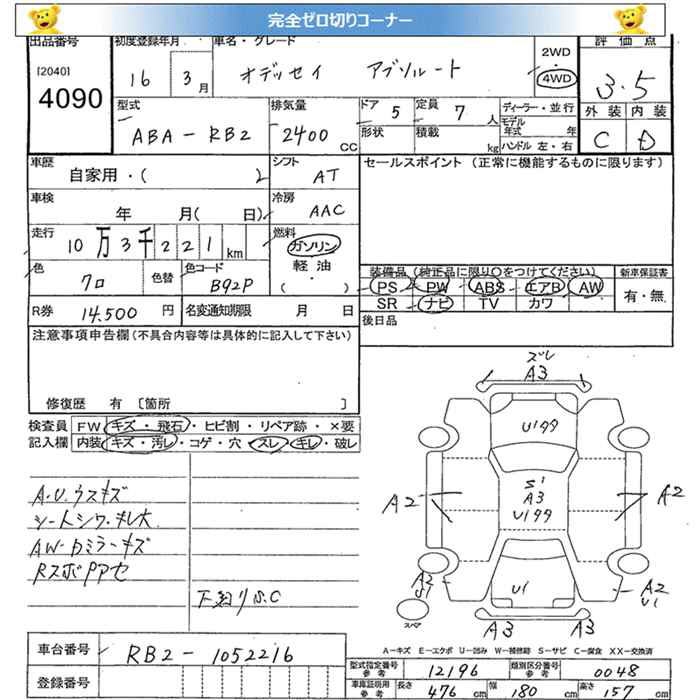 完全ゼロ切りコーナー
出品番号 初度登録年月 車名・グレード 2WD 評価点
[2040] 16 3月 オデッセイ アブソルート 4WD 3.5
4090
型式 排気量 ドア 5 定員 7人 ディーラー・並行 外装 内装
ABA-RB2 2400cc 形状 積載 kg モデル年式 年 C D
ハンドル 左・右
車歴 シフト セールスポイント (正常に機能するものに限ります)
自家用・( ) AT
車検 冷房
年 月( 日) AAC
走行 燃料
10万3千221km ガソリン
軽油
・
( )
色 色替 色コード 装備品 (純正品に限り○をつけてください) 新車保証書
クロ B92P PS PW ABS エアB AW 有・無
SR ナビ TV カワ
R券 14.500円 名変通知期限 月 日 後日品
注意事項申告欄 (不具合内容等は具体的に記入して下さい)
修復歴 有 [箇所 ]
検査員 FW キズ・飛石・ヒビ割・リペア跡・×要
記入欄 内装 キズ・汚レ・コゲ・穴・スレ・キレ・破レ
A.U.ウスキズ
シートシワ・キレ大
AW・Dミラーキズ
RスポPアセ
下廻りS.C
ズレ
A3
U199
S1
A3
U199
A2 A2
U1
A2
U1
A2
U1
スペア
A3 A3
A-キズ E-エクボ U-凹み W-補修跡 S-サビ C-腐食 XX-交換済
車台番号 RB2-1052216
登録番号
型式指定番号 参考 12196 類別区分番号 参考 0048
車庫証明用 参考 長さ 476cm 幅 180cm 高さ 157cm